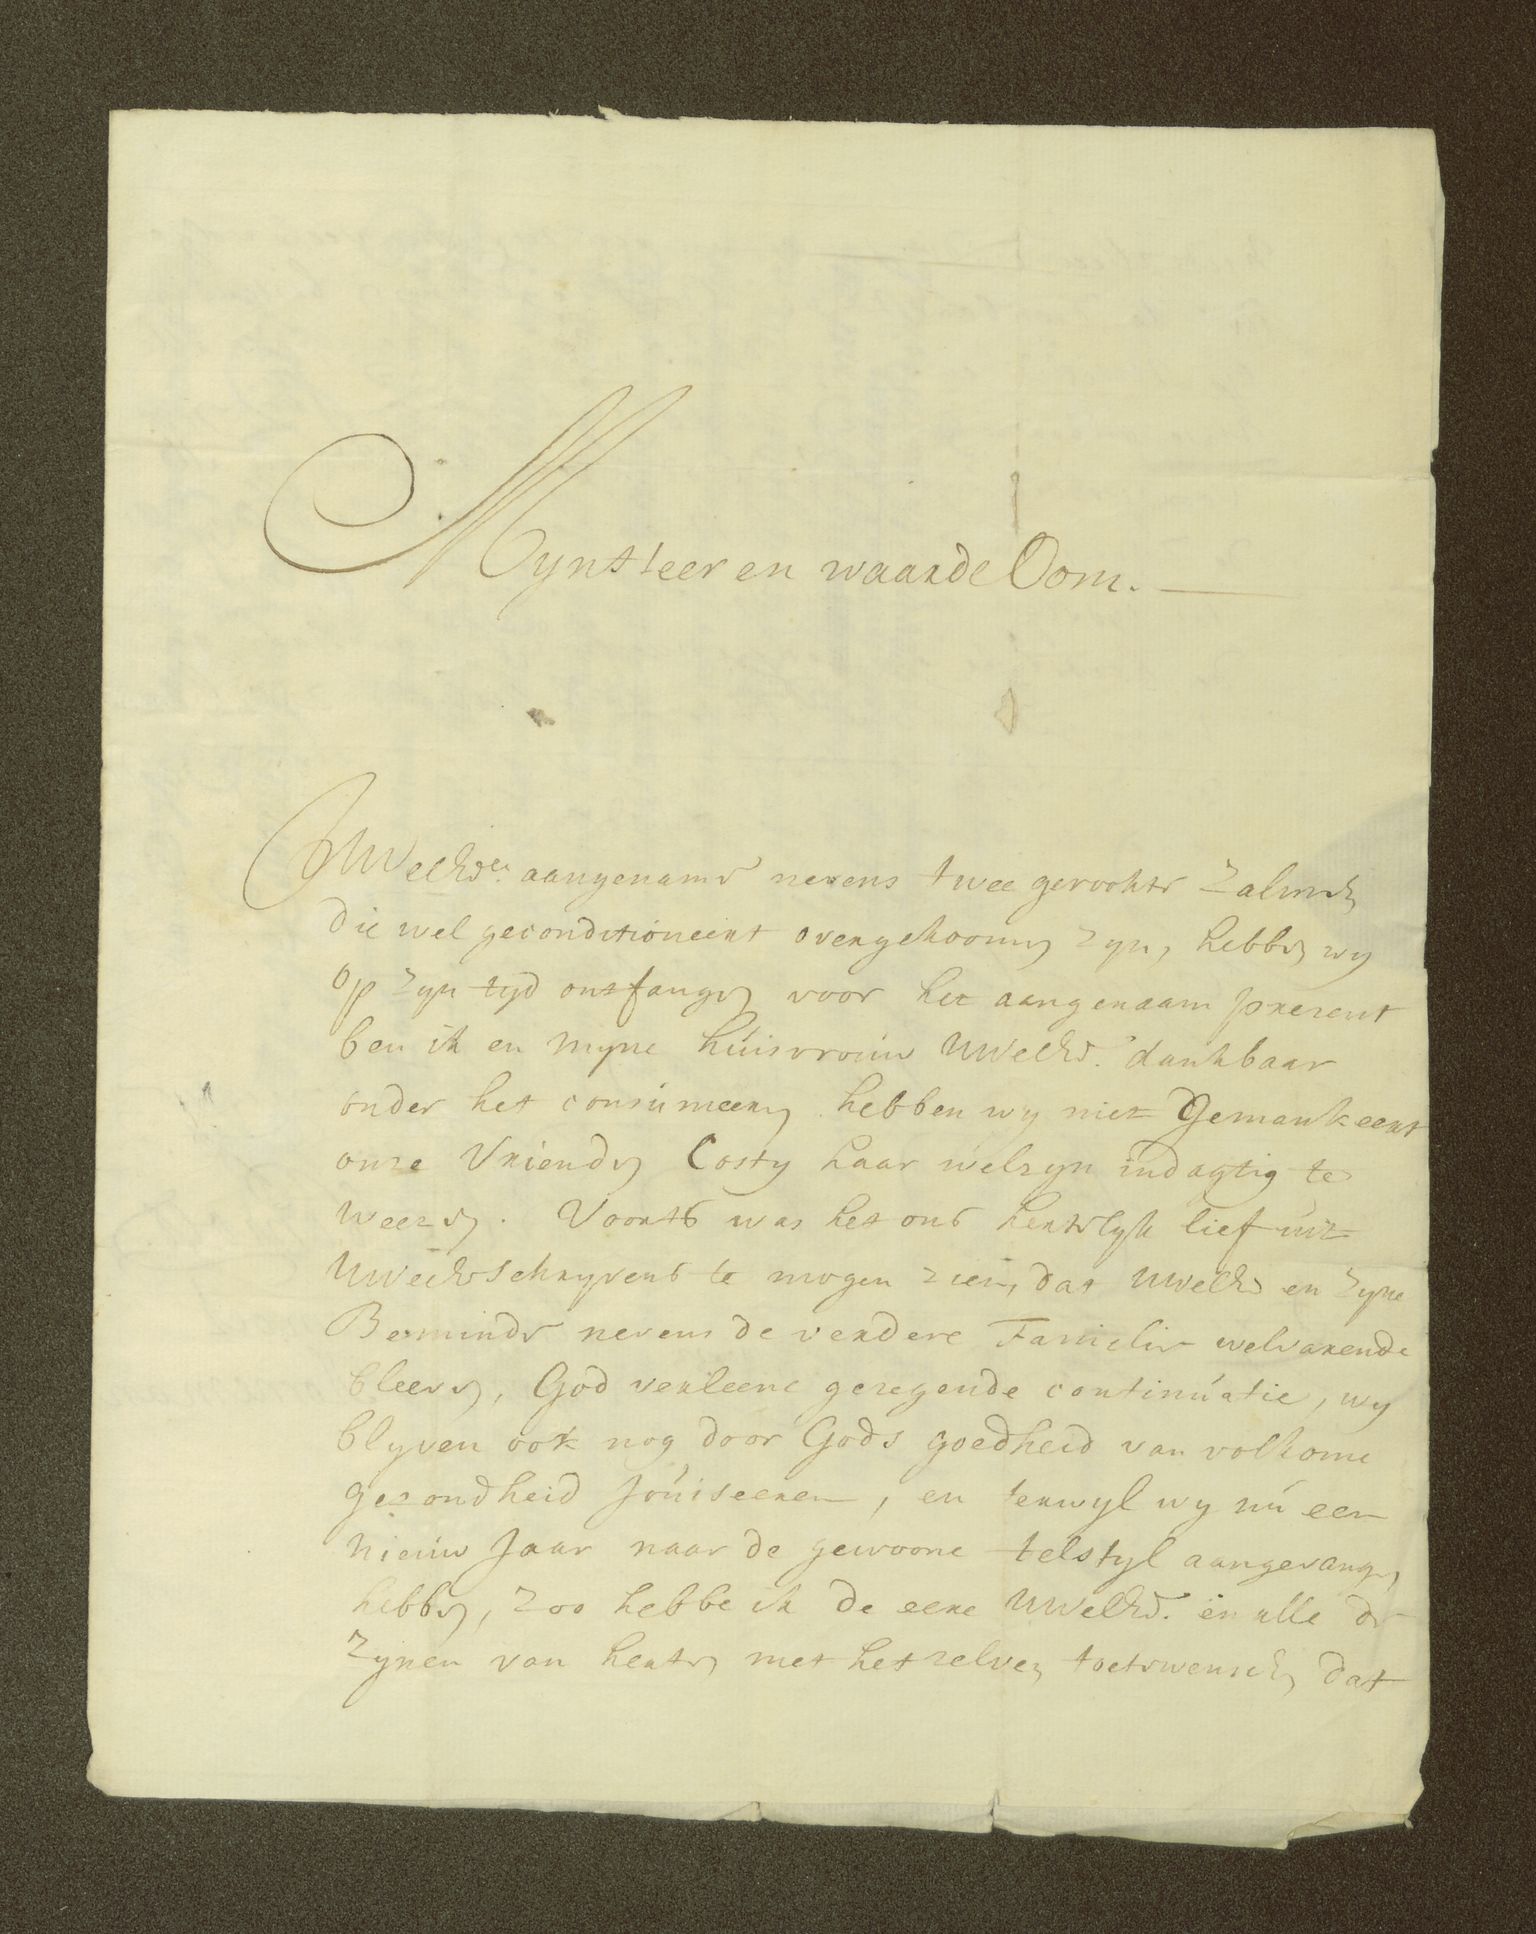 Myn Heer en waarde Oom.
UWelEd.e aangename nevens twee gerookte zalmen
die wel geconditioneert overgekoomen zyn, hebben wy
op zyn tyd ontfangen voor het aangenaam present
ben ik en myne húisvroúw UWelEd. dankbaar
onder het consúmeeren hebben wy niet Gemankeert
onze Vrienden Costy haar welzyn indagtig te
weezen. Voorts was het ons hertelyk lief úit
UWelEd schryvens te mogen zien, dat UWelEd en zyne
Beminde nevens de verdere Familie welvarende
bleeven, God verleene gezegende continúatie, wy
blyven ook nog door Gods goedheid van volkome
gezondheid Joúiseeren, en terwyl wy nú een
nieúw Jaar naar de gewoone telstyl aangevangen
hebben, zoo hebbe ik de eere UWelEd. en alle de
zynen van herten met het zelven toetewenschen dat